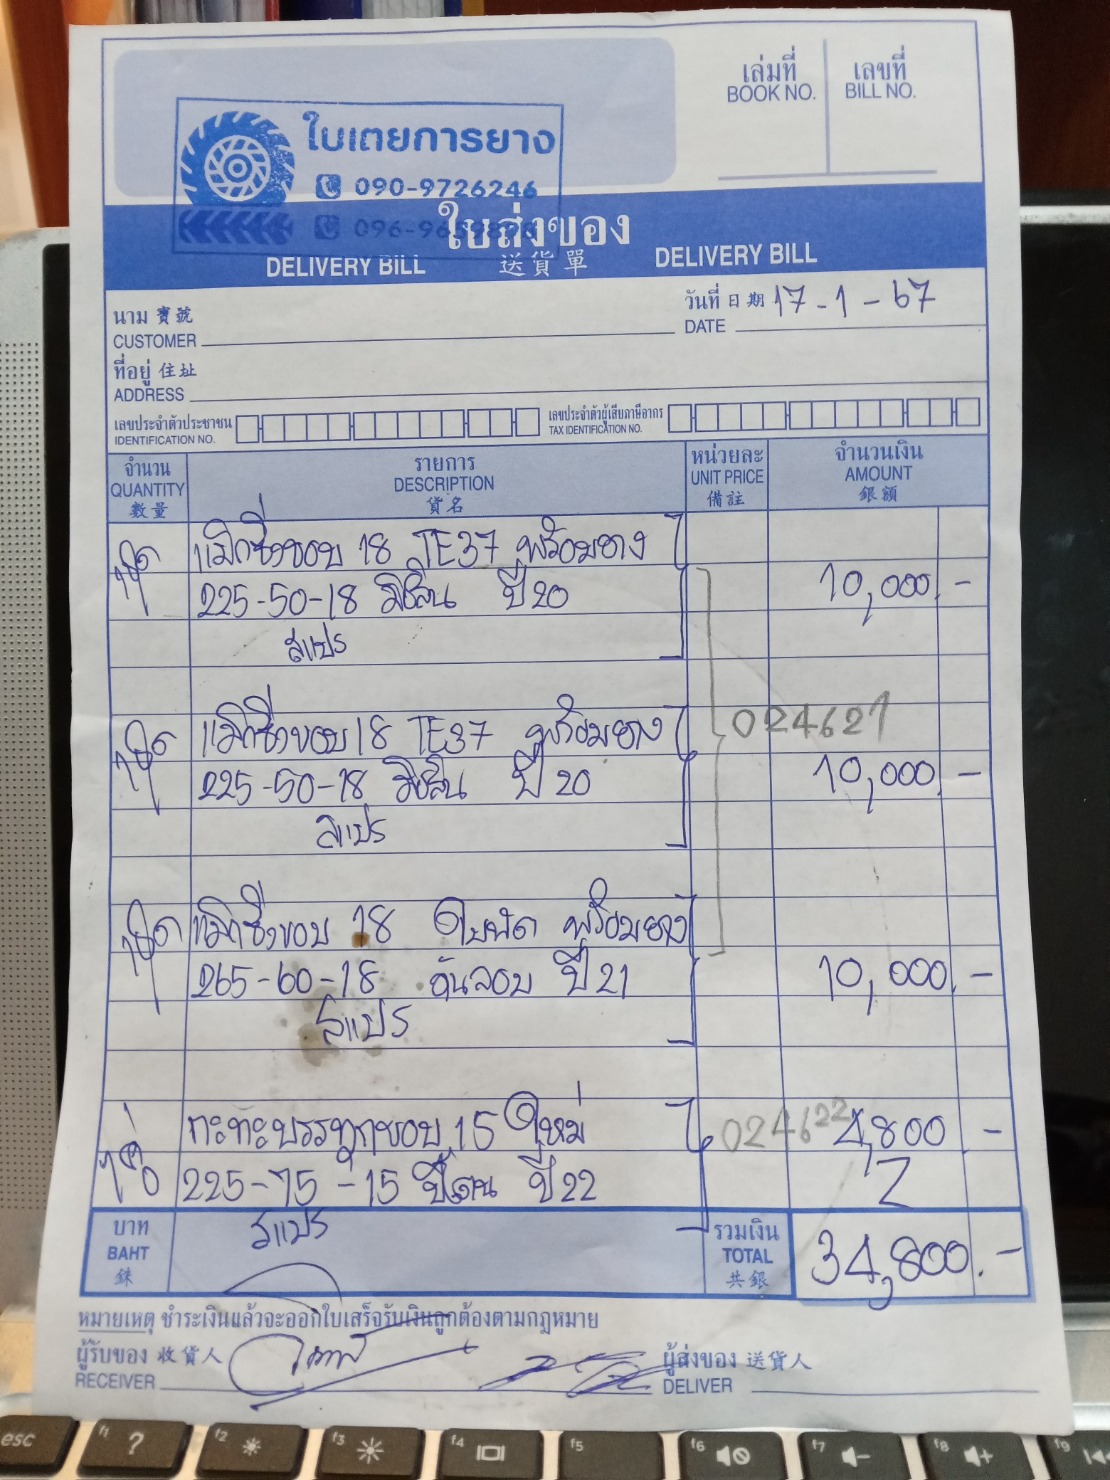 เล่มที่ เลขที่
BOOK NO. BILL NO.
ใบเตยการยาง
090-9726246
ใบส่งของ
DELIVERY BILL 送貨單 DELIVERY BILL
วันที่ 日期 17-1-67
DATE
นาม 寶號
CUSTOMER
ที่อยู่ 住址
ADDRESS
เลขประจำตัวประชาชน เลขประจำตัวผู้เสียภาษีอากร
IDENTIFICATION NO. TAX IDENTIFICATION NO.
จำนวน รายการ หน่วยละ จำนวนเงิน
QUANTITY DESCRIPTION UNIT PRICE AMOUNT
數量 貨名 備註 銀額
แม็กซิ่งขอบ 18 TE37 พร้อมยาง
225-50-18 มิชลิน ปี 20 10,000.-
สแปร
แม็กซิ่งขอบ 18 TE37 พร้อมยาง 024621
225-50-18 มิชลิน ปี 20 10,000.-
สแปร
แม็กซิ่งขอบ 18 ใบพัด พร้อมยาง
265-60-18 ดันลอป ปี 21 10,000.-
สแปร
กะทะบรรทุกขอบ 15 ใหม่ 024622 4,800 -
225-75-15 ปี 22
สแปร
บาท รวมเงิน
BAHT TOTAL 34,800.-
銖 共銀
หมายเหตุ ชำระเงินแล้วจะออกใบเสร็จรับเงินถูกต้องตามกฎหมาย
ผู้รับของ 收貨人 ผู้ส่งของ 送貨人
RECEIVER DELIVER
esc f1 ? f2 f3 f4 f5 f6 f7 f8 f9